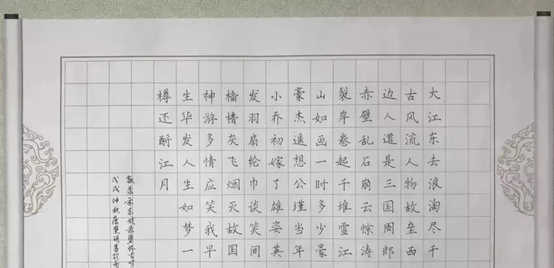 大江东去浪淘尽千
古风流人物故垒西
边人道是三国周郎
赤壁乱石崩云惊涛
裂岸卷起千堆雪江
山如画一时多少豪
豪杰遥想公瑾当年
小乔初嫁了雄姿英
发羽扇纶巾谈笑间
樯橹灰飞烟灭故国
神游多情应笑我早
生华发人生如梦一
樽还酹江月
敬录苏东坡赤壁怀古
戊戌仲秋